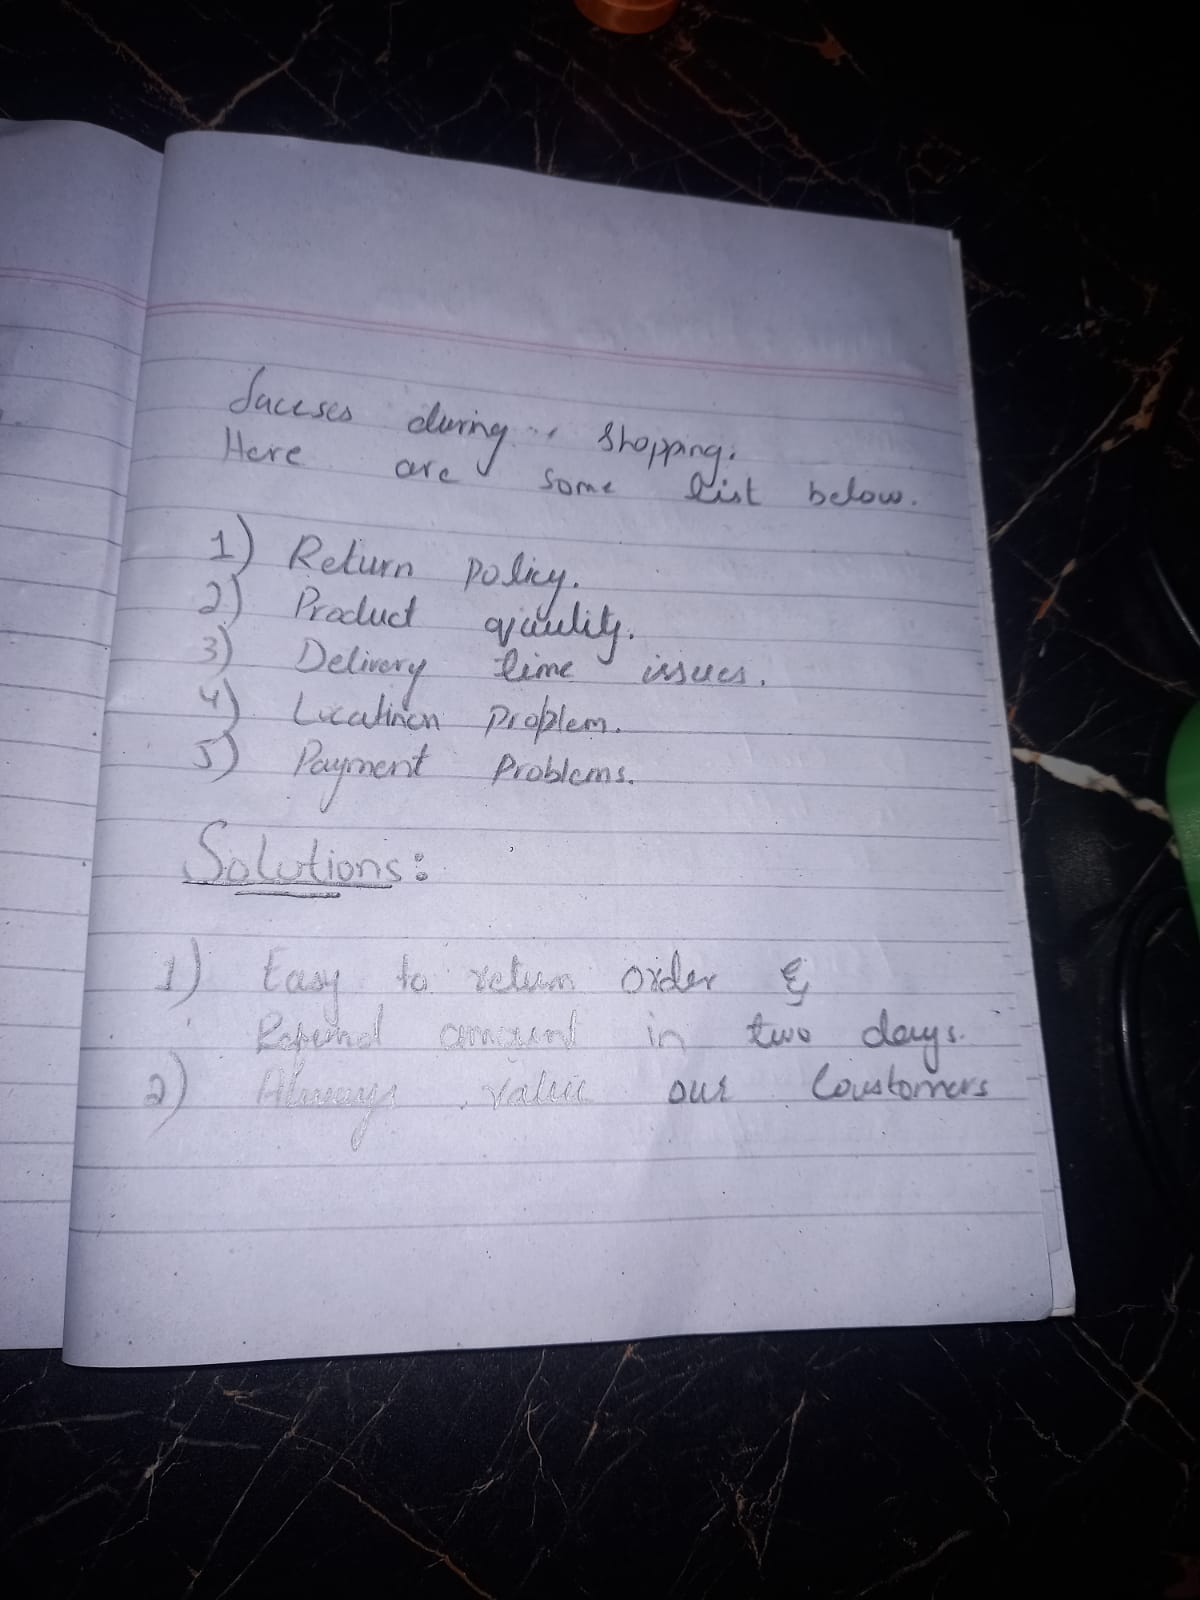 Sucsses during shopping.
Here are some list below.
1) Return policy.
2) Product quality.
3) Delivery time issues.
4) Locatinon Problem.
5) Payment Problems.
Solutions:
1) Easy to return order &
Refund amount in two days.
2) Always value our Coustomers